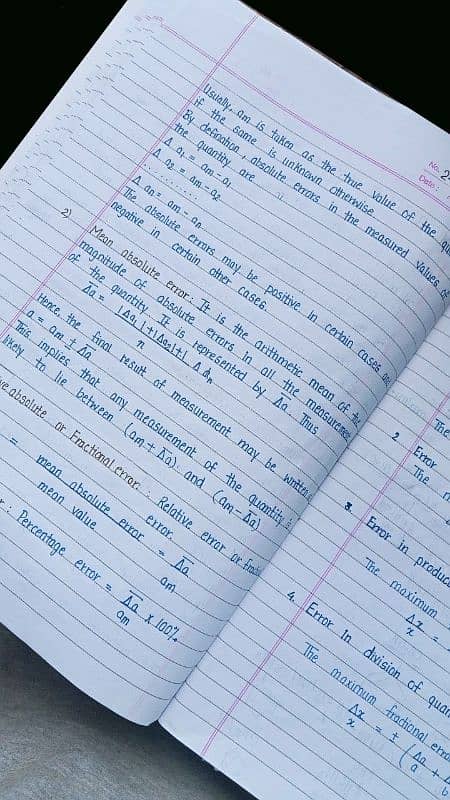 No. 2
Date:
Usually am is taken as the true value of the
if the same is unknown otherwise.
By defination, absolute errors in the measured values of
the quantity are
Δ a1 = am - a1
Δ a2 = am - a2
Δ an = am - an
The absolute errors may be positive in certain cases and
negative in certain other cases.
2) Mean absolute error: It is the arithmetic mean of the
magnitude of absolute errors in all the measurement
of the quantity. It is represented by Δa. Thus
Δa = |Δa1|+|Δa2|+|..Δ an
n
Hence, the final result of measurement may be written
a = am ± Δa
This implies that any measurement of the quantity
likely to lie between (am + Δa) and (am - Δa)
absolute or Fractional error: Relative error or
error.
= mean absolute error = Δa
mean value am
Percentage error = Δa x 100%.
am
The
2. Error
The
3. Error in
The maximum
Δx =
x
4. Error In division of
The maximum fractional
Δx = ± (Δa +
x a b